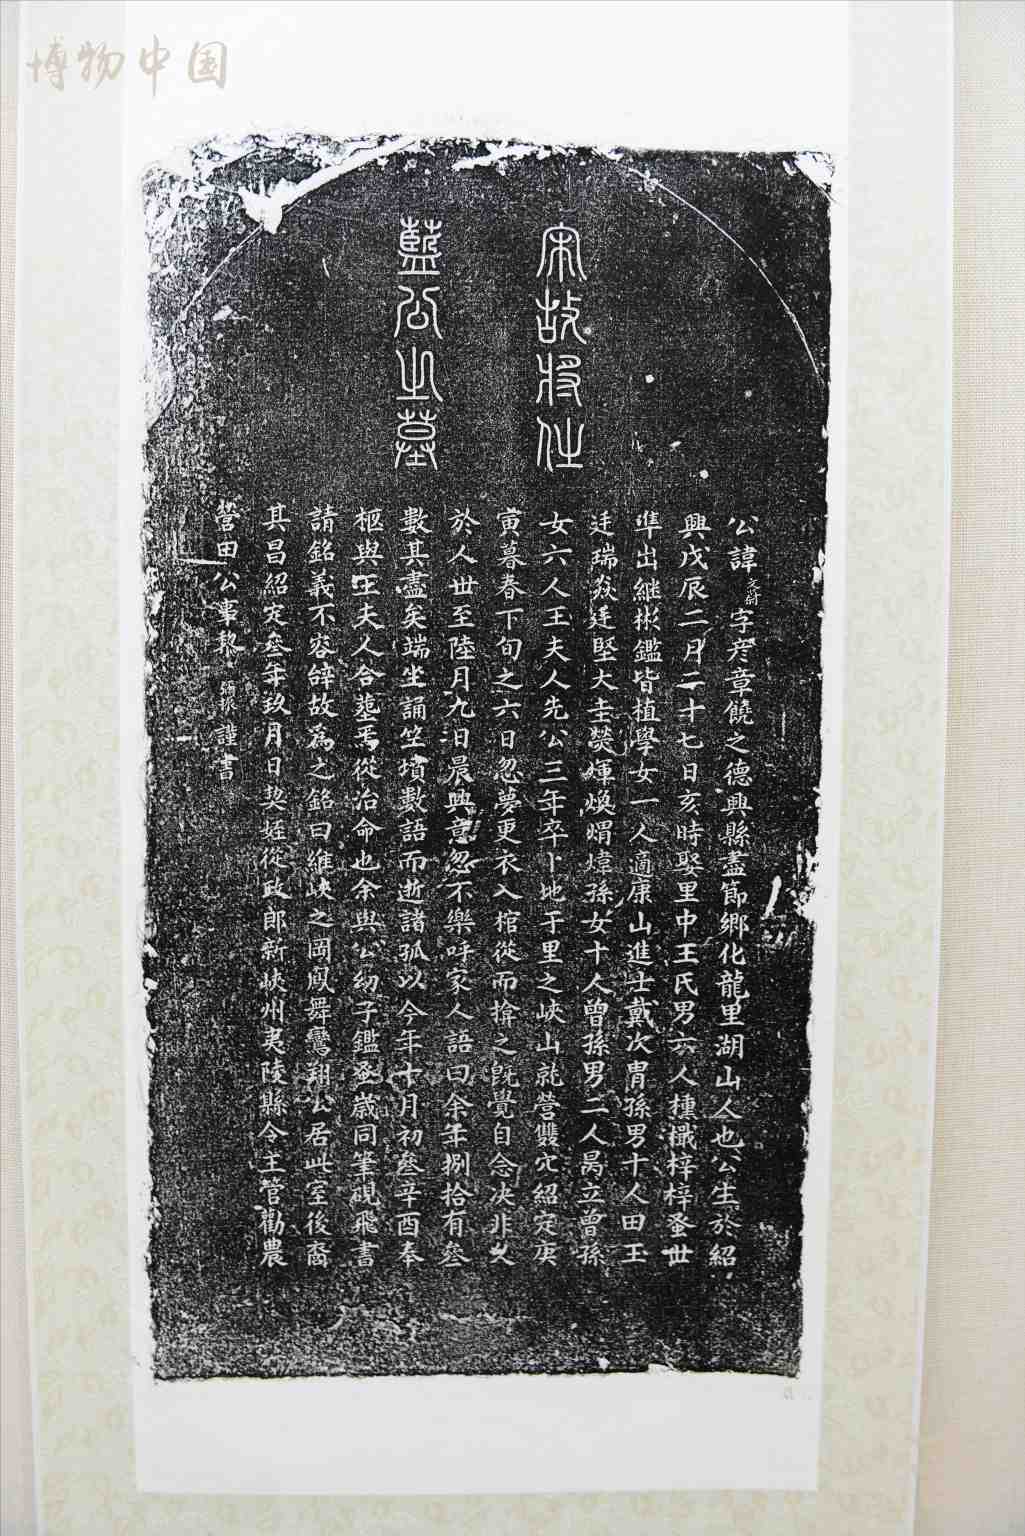 博物中国
宋故將仕
藍公之墓
公諱文蔚字彦章饒之德興縣盡節鄉化龍里湖山人也公生於紹
興戊辰二月二十七日亥時娶里中王氏男六人櫄檝梓梓蚤世
準出繼彬鑑皆植學女一人適康山進士戴次胄孫男十人田玉
廷瑞焱廷堅大圭熒煇煥熠煒孫女十人曾孫男二人昺立曾孫
女六人王夫人先公三年卒卜地于里之峽山就營雙穴紹定庚
寅暮春下旬之六日忽夢更衣入棺從而揜之既覺自念決非久
於人世至陸月九日晨興意忽不樂呼家人語曰余年捌拾有叄
數其盡矣端坐誦竺墳數語而逝諸孤以今年十月初叄辛酉奉
柩與王夫人合塟焉從治命也余與公幼子鑑蚤歲同筆硯飛書
請銘義不容辭故為之銘曰維峽之岡鳳舞鸞翔公居此室後裔
其昌紹定叄年玖月日契姪從政郎新峽州夷陵縣令主管勸農
營田公事謹書